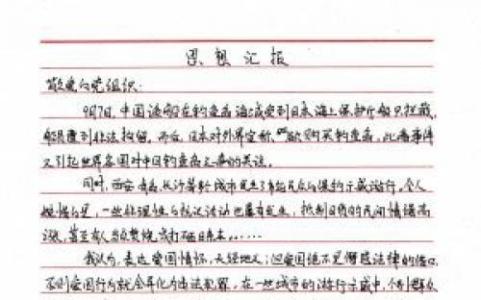 思想汇报
敬爱的党组织:
9月7日,中国渔船在钓鱼岛海域受到日本海上保护厅船只拦截,
船只遭到非法拘留。而后,日本对外界宣称,购买钓鱼岛,此番事件
又引起世界各国对中国钓鱼岛之岛的关注。
同时,西安、青岛、长沙等城市发生了各起民众自保钓示威游行。令人
惋惜的是,一些非理性的抗议活动也屡有发生,抵制日货的民间情绪高
涨,甚至有人当众焚烧或打砸日系车……
我认为,表达爱国情怀,天经地义;但爱国绝不是僭越法律的借口,
不则爱国行为就会异化为违法犯罪。在一些城市的游行示威中,个别群众